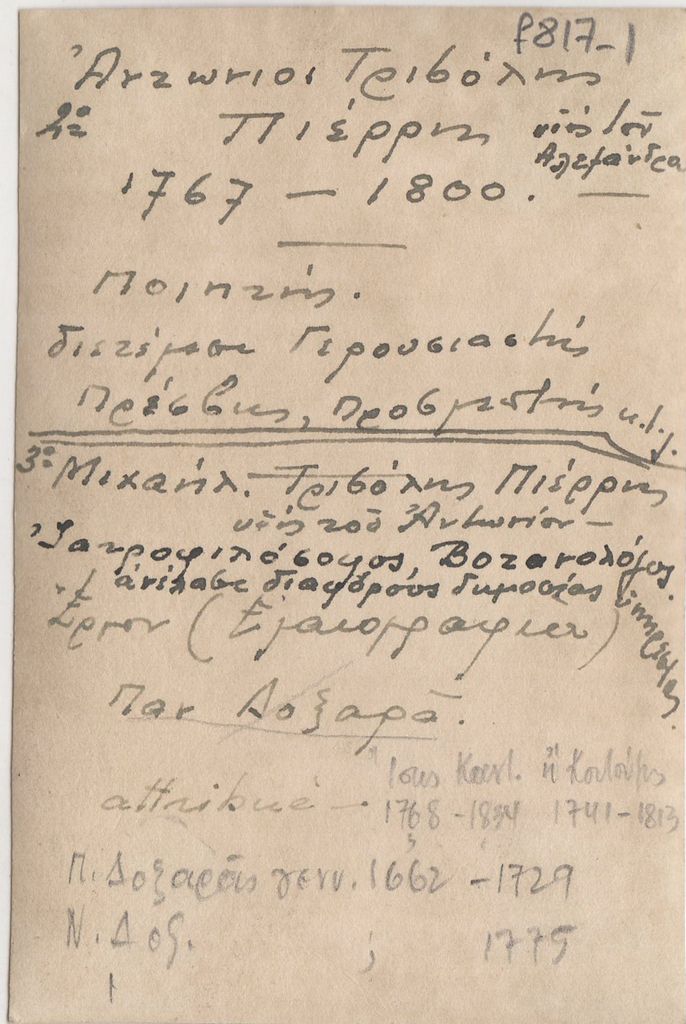 f817-1
Ἀντώνιοι Τριβόλης
2ος Πιέρρης υἱός τοῦ
Ἀλεξάνδρα
1767 — 1800. —
Ποιητής.
διετέλεσε Γερουσιαστής
Πρέσβης, Προβλεπτής κ.τ.λ.
3ος Μιχαήλ. Τριβόλης Πιέρρης
υἱός τοῦ Ἀντωνίου —
Ἰατροφιλόσοφος, Βοτανολόγος.
ἀνέλαβε διαφόρους δημοσίας ὑπηρεσίας.
Ἔργον (Ἐλαιογραφία)
Παν Δοξαρᾶ.
Ἴσως Καντ. ἢ Κουτούζης
attribué — 1768 - 1834 1741 - 1813
Π. Δοξαρᾶς γενν. 1662 - 1729
Ν. Δοξ. ; 1775